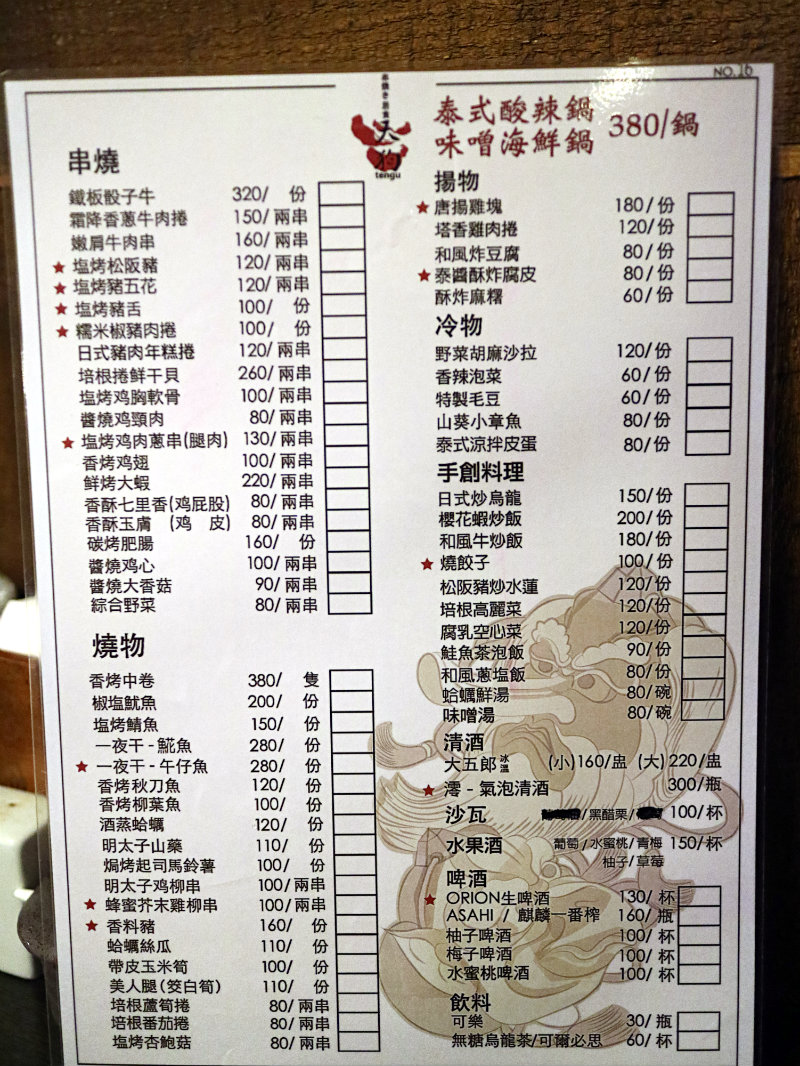 NO.16
串燒き居食
天狗
tengu
串燒
鐵板骰子牛 320/ 份
霜降香蔥牛肉捲 150/兩串
嫩肩牛肉串 160/兩串
★塩烤松阪豬 120/兩串
★塩烤豬五花 120/兩串
★塩烤豬舌 100/ 份
★糯米椒豬肉捲 100/ 份
日式豬肉年糕捲 120/兩串
培根捲鮮干貝 260/兩串
塩烤鸡胸軟骨 100/兩串
醬燒鸡頸肉 80/兩串
★塩烤鸡肉蔥串(腿肉) 130/兩串
香烤鸡翅 100/兩串
鮮烤大蝦 220/兩串
香酥七里香(鸡屁股) 80/兩串
香酥玉膚 (鸡 皮) 80/兩串
碳烤肥腸 160/ 份
醬燒鸡心 100/兩串
醬燒大香菇 90/兩串
綜合野菜 80/兩串
燒物
香烤中卷 380/ 隻
椒塩魷魚 200/ 份
塩烤鯖魚 150/ 份
一夜干-鯤魚 280/ 份
★一夜干-午仔魚 280/ 份
香烤秋刀魚 120/ 份
香烤柳葉魚 100/ 份
酒蒸蛤蠣 120/ 份
明太子山藥 110/ 份
焗烤起司馬鈴薯 100/ 份
明太子鸡柳串 100/兩串
★蜂蜜芥末雞柳串 100/兩串
★香料豬 160/ 份
蛤蠣絲瓜 110/ 份
帶皮玉米筍 100/ 份
美人腿(筊白筍) 110/ 份
培根蘆筍捲 80/兩串
培根番茄捲 80/兩串
塩烤杏鮑菇 80/兩串
泰式酸辣鍋
味噌海鮮鍋 380/鍋
揚物
★唐揚雞塊 180/份
塔香雞肉捲 120/份
和風炸豆腐 80/份
★泰醬酥炸腐皮 80/份
酥炸麻糬 60/份
冷物
野菜胡麻沙拉 120/份
香辣泡菜 60/份
特製毛豆 60/份
山葵小章魚 80/份
泰式涼拌皮蛋 80/份
手創料理
日式炒烏龍 150/份
櫻花蝦炒飯 200/份
和風牛炒飯 180/份
★燒餃子 100/份
松阪豬炒水蓮 120/份
培根高麗菜 120/份
腐乳空心菜 120/份
鮭魚茶泡飯 90/份
和風蔥塩飯 80/份
蛤蠣鮮湯 80/碗
味噌湯 80/碗
清酒
大五郎 冰溫 (小)160/盅 (大)220/盅
★澪-氣泡清酒 300/瓶
沙瓦 /黑醋栗/ 100/杯
水果酒 葡萄/水蜜桃/青梅 150/杯
柚子/草莓
啤酒
★ORION生啤酒 130/杯
ASAHI / 麒麟一番榨 160/瓶
柚子啤酒 100/杯
梅子啤酒 100/杯
水蜜桃啤酒 100/杯
飲料
可樂 30/瓶
無糖烏龍茶/可爾必思 60/杯